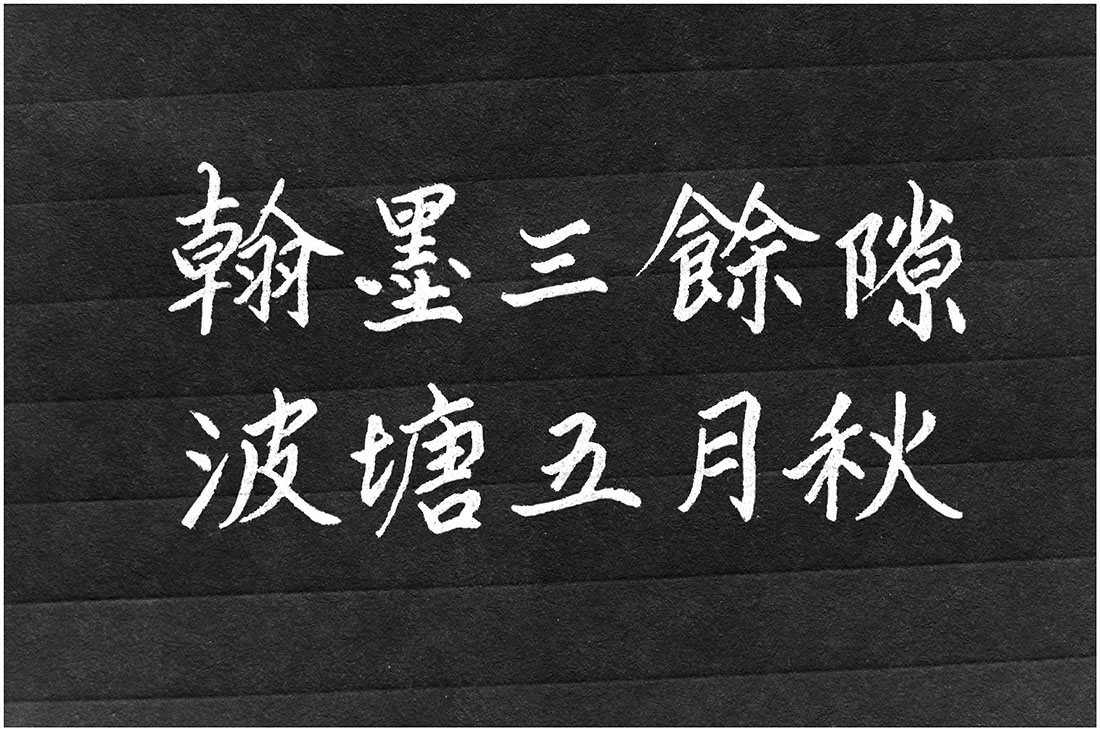 翰墨三餘隙
波塘五月秋